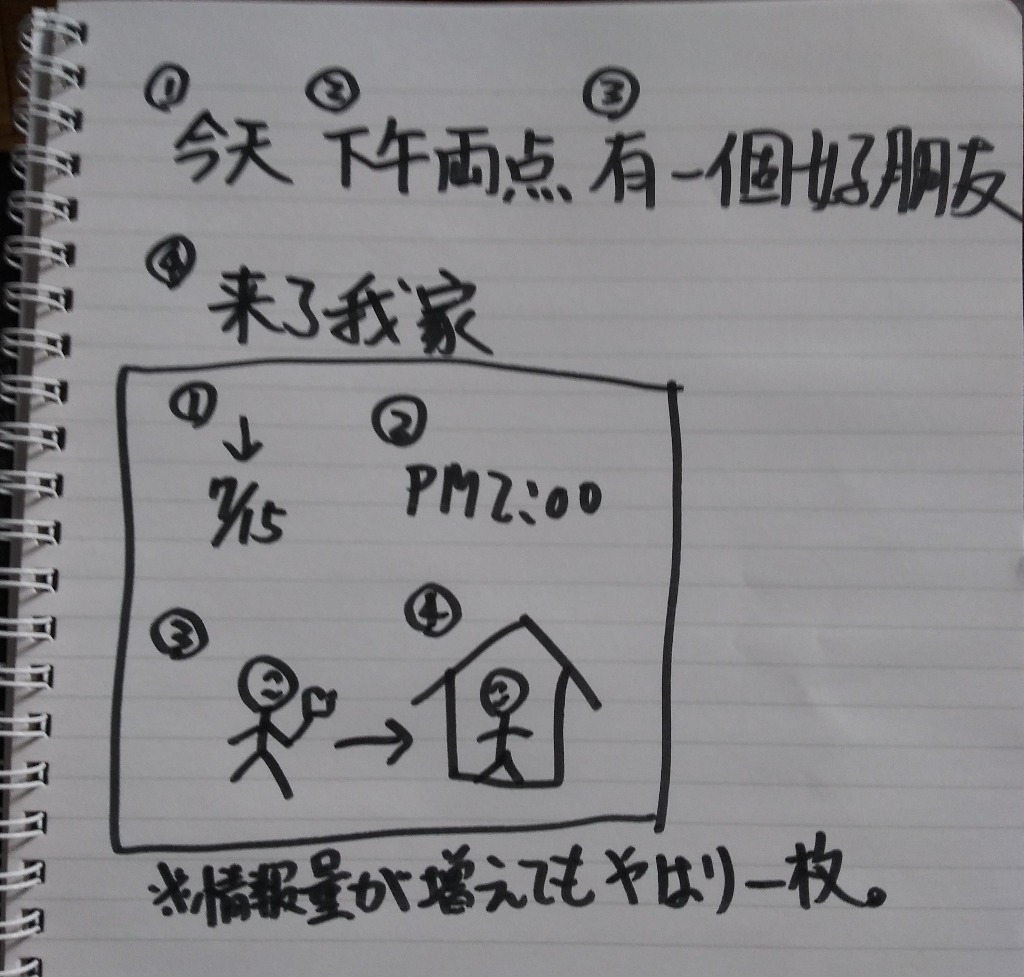 ① ② ③
今天 下午両点 有一個好朋友
④ 来了我家
① ②
↓
7/15 PM2:00
③ ④
→
※情報量が増えてもやはり一枚。